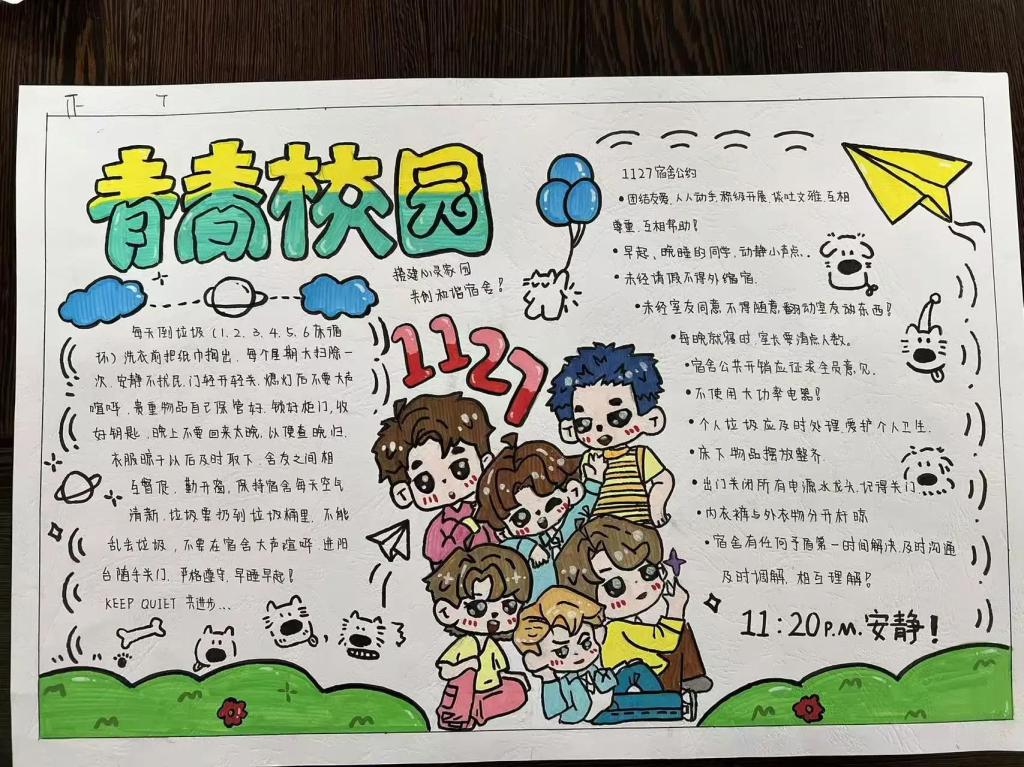 青春校园
搭建心灵家园
共创和谐宿舍!
1127
每天倒垃圾(1.2.3.4.5.6床循
环)洗衣前把纸巾掏出,每个星期大扫除一
次,安静不扰民,门轻开轻关,熄灯后不要大声
喧哗,贵重物品自己保管好,锁好柜门,收
好钥匙,晚上不要回来太晚,以便查晚归.
衣服晾干以后及时取下,舍友之间相
互督促,勤开窗,保持宿舍每天空气
清新,垃圾要扔到垃圾桶里,不能
乱丢垃圾,不要在宿舍大声喧哗,进阳
台随手关门,严格遵守,早睡早起!
KEEP QUIET 共进步...
1127宿舍公约
•团结友爱,人人动手,积极开展,谈吐文雅,互相
尊重,互相帮助!
•早起、晚睡的同学,动静小声点..
•未经请假不得外宿.
•未经室友同意不得随意翻动室友的东西!
•每晚就寝时,室长要清点人数。
•宿舍公共开销应征求全员意见.
•不使用大功率电器!
•个人垃圾应及时处理,爱护个人卫生.
•床下物品摆放整齐.
•出门关闭所有电源水龙头,记得关门
•内衣裤与外衣物分开杆晾
•宿舍有任何矛盾第一时间解决,及时沟通
及时调解,相互理解!
11:20P.M.安静!